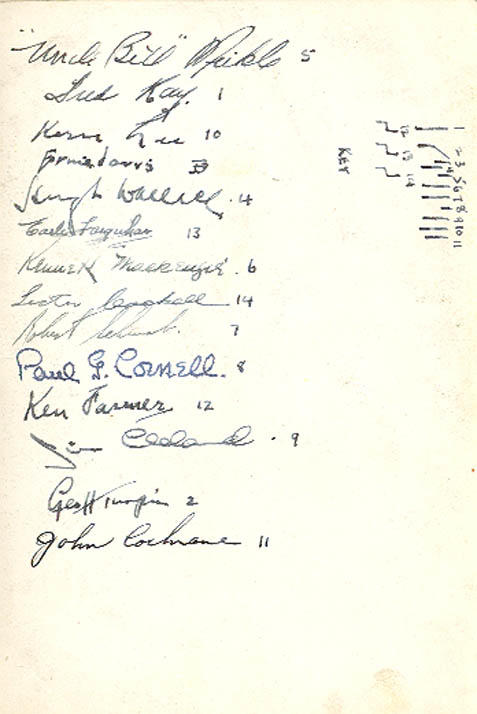 "Uncle Bill" Mickle 5
Fred Kay. 1
Kerr Lee 10
Ernie Davis 3
Wallace. 4
Earle Farquhar 13
Kenneth Mackenzie. 6
Lester Campbell 14
Robert Schwab. 7
Paul G. Cornell. 8
Ken Farmer 12
Jim Cleland. 9
Geo H Turpin 2
John Cochrane 11
KEY
12 13 14
1 2 3 4 5 6 7 8 9 10 11